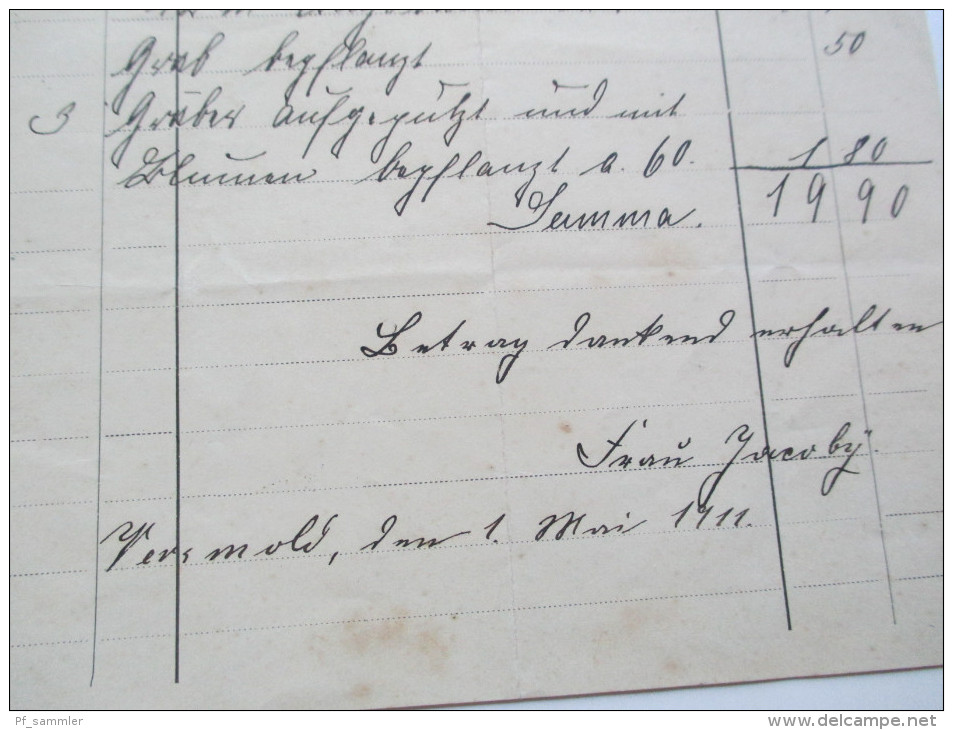 Grab bepflanzt 50
3 Gräber aufgeputzt und mit
Blumen bepflanzt a. 60. 1 80
Summa. 19 90
Betrag dankend erhalten
Frau Jacoby.
Versmold, den 1. Mai 1911.
Pf_sammler
www.delcampe.net